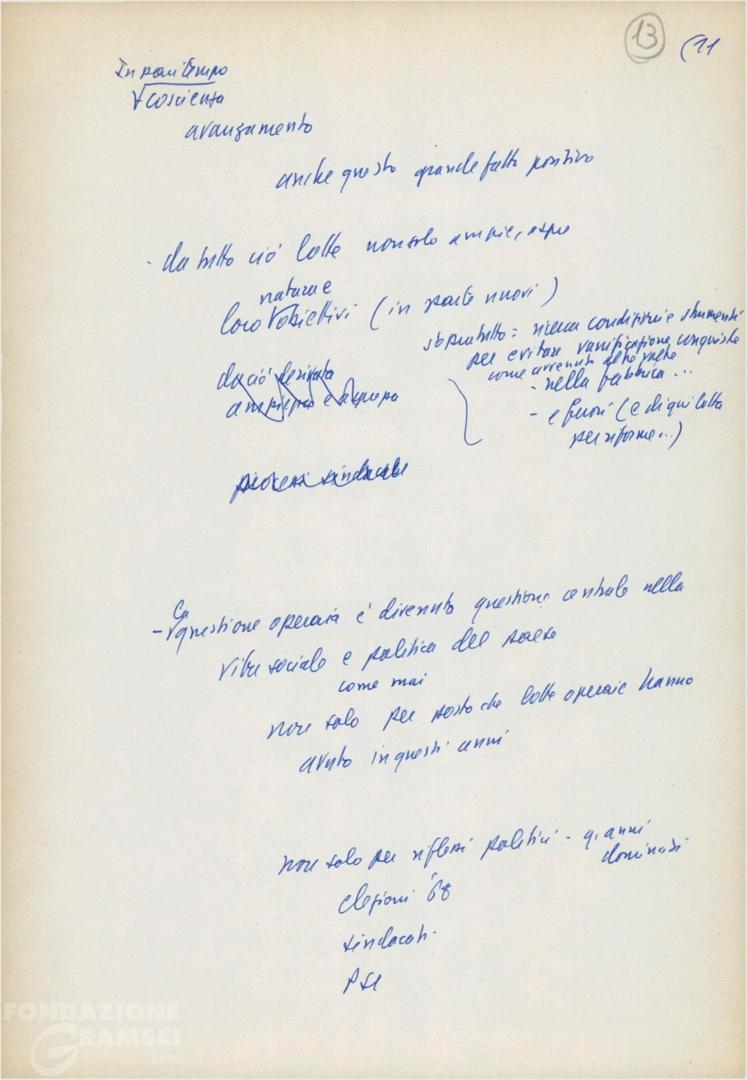 13 (11
In pari tempo
coscienza
avanzamento
anche questo grande fatto positivo
- da tutto ciò lotte non solo ampie, aspre
nature
loro obiettivi (in parte nuovi)
soprattutto = ricerca condizioni e strumenti
per evitare vanificazione conquiste
come avvenuto altre volte
- nella fabbrica ...
- e fuori (e di qui lotta
per riforme...)
da ciò derivata
ampiezza e asprezza
processi sindacale
La
- questione operaia è divenuta questione centrale nella
vita sociale e politica del paese
come mai
non solo per posto che lotte operaie hanno
avuto in questi anni
non solo per riflessi politici - q. anni
dominati
elezioni '68
sindacati.
PSI
FONDAZIONE
GRAMSCI